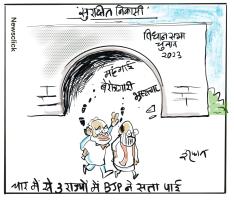 Newsclick
"सुरक्षित निकासी"
विधानसभा
चुनाव
2023
महंगाई
बेरोजगारी
भ्रष्टाचार
चार में से 3 राज्यों में BJP ने सत्ता पाई